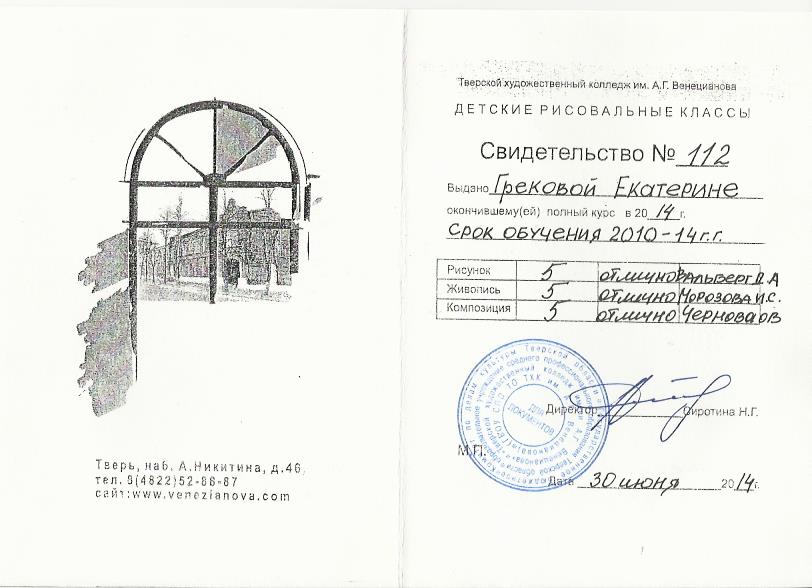 Тверь, наб. А.Никитина, д.46,
тел. 8(4822)52-88-87
сайт:www.venezianova.com
Тверской художественный колледж им. А.Г. Венецианова
ДЕТСКИЕ РИСОВАЛЬНЫЕ КЛАССЫ
Свидетельство № 112
Выдано Грековой Екатерине
окончившему(ей) полный курс в 2014 г.
Срок обучения 2010-14г.г.
Рисунок 5 отлично Вальверг Д.А
Живопись 5 отлично Морозова И.С.
Композиция 5 отлично Чернова ОВ
ДЛЯ ДОКУМЕНТОВ
Директор Сиротина Н.Г.
М.П.
Дата 30 июня 2014г.